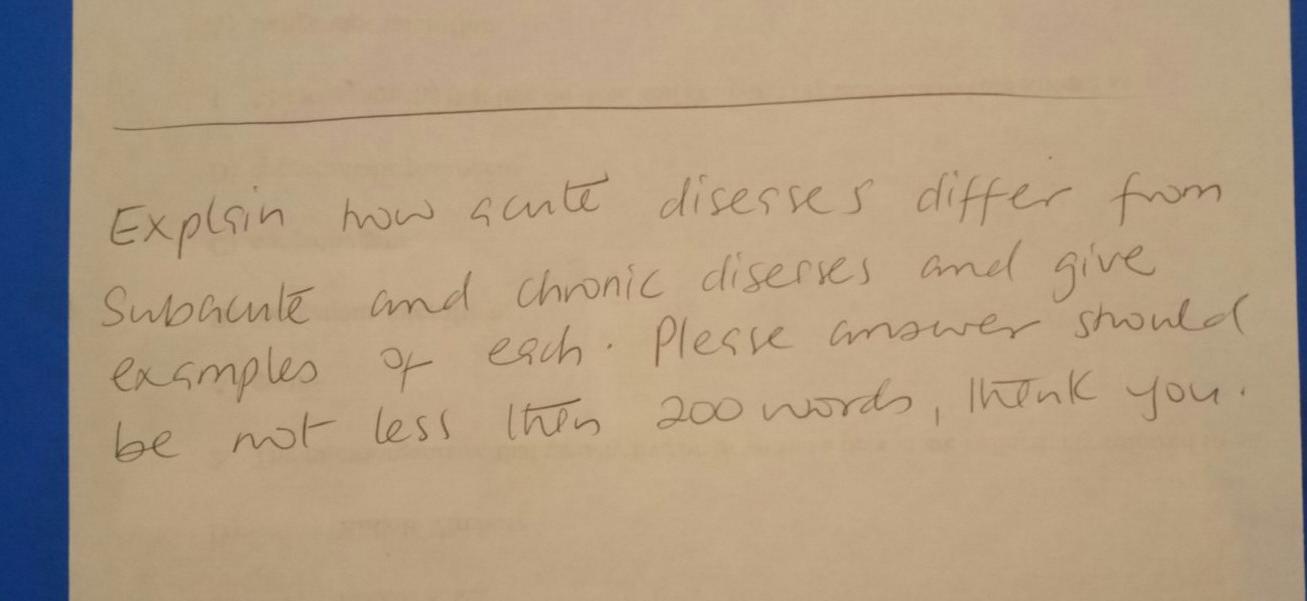 Explain how acute diseases differ from
Subacute and chronic diseases and give
examples of each. Please answer should
be not less then 200 words, thank you.